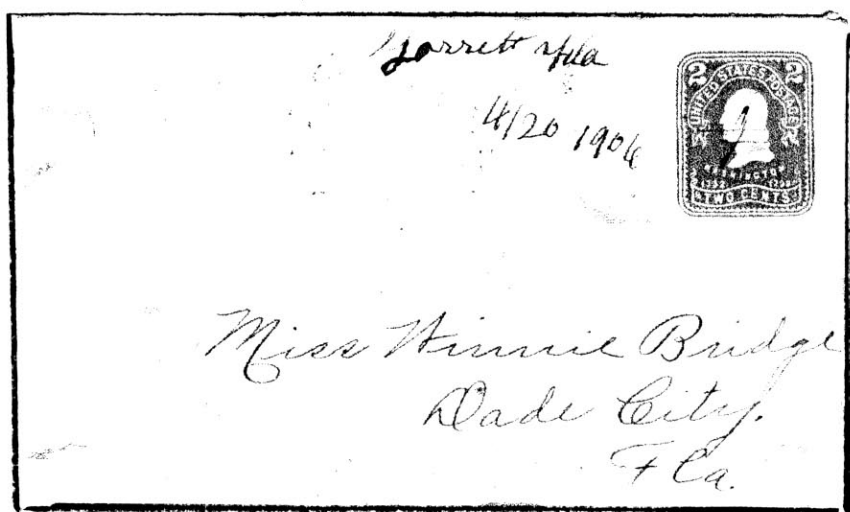 Jarrett Fla
4/20 1906
2 2
UNITED STATES POSTAGE
WASHINGTON
TWO CENTS
Miss Winnie Bridge
Dade City,
Fla.